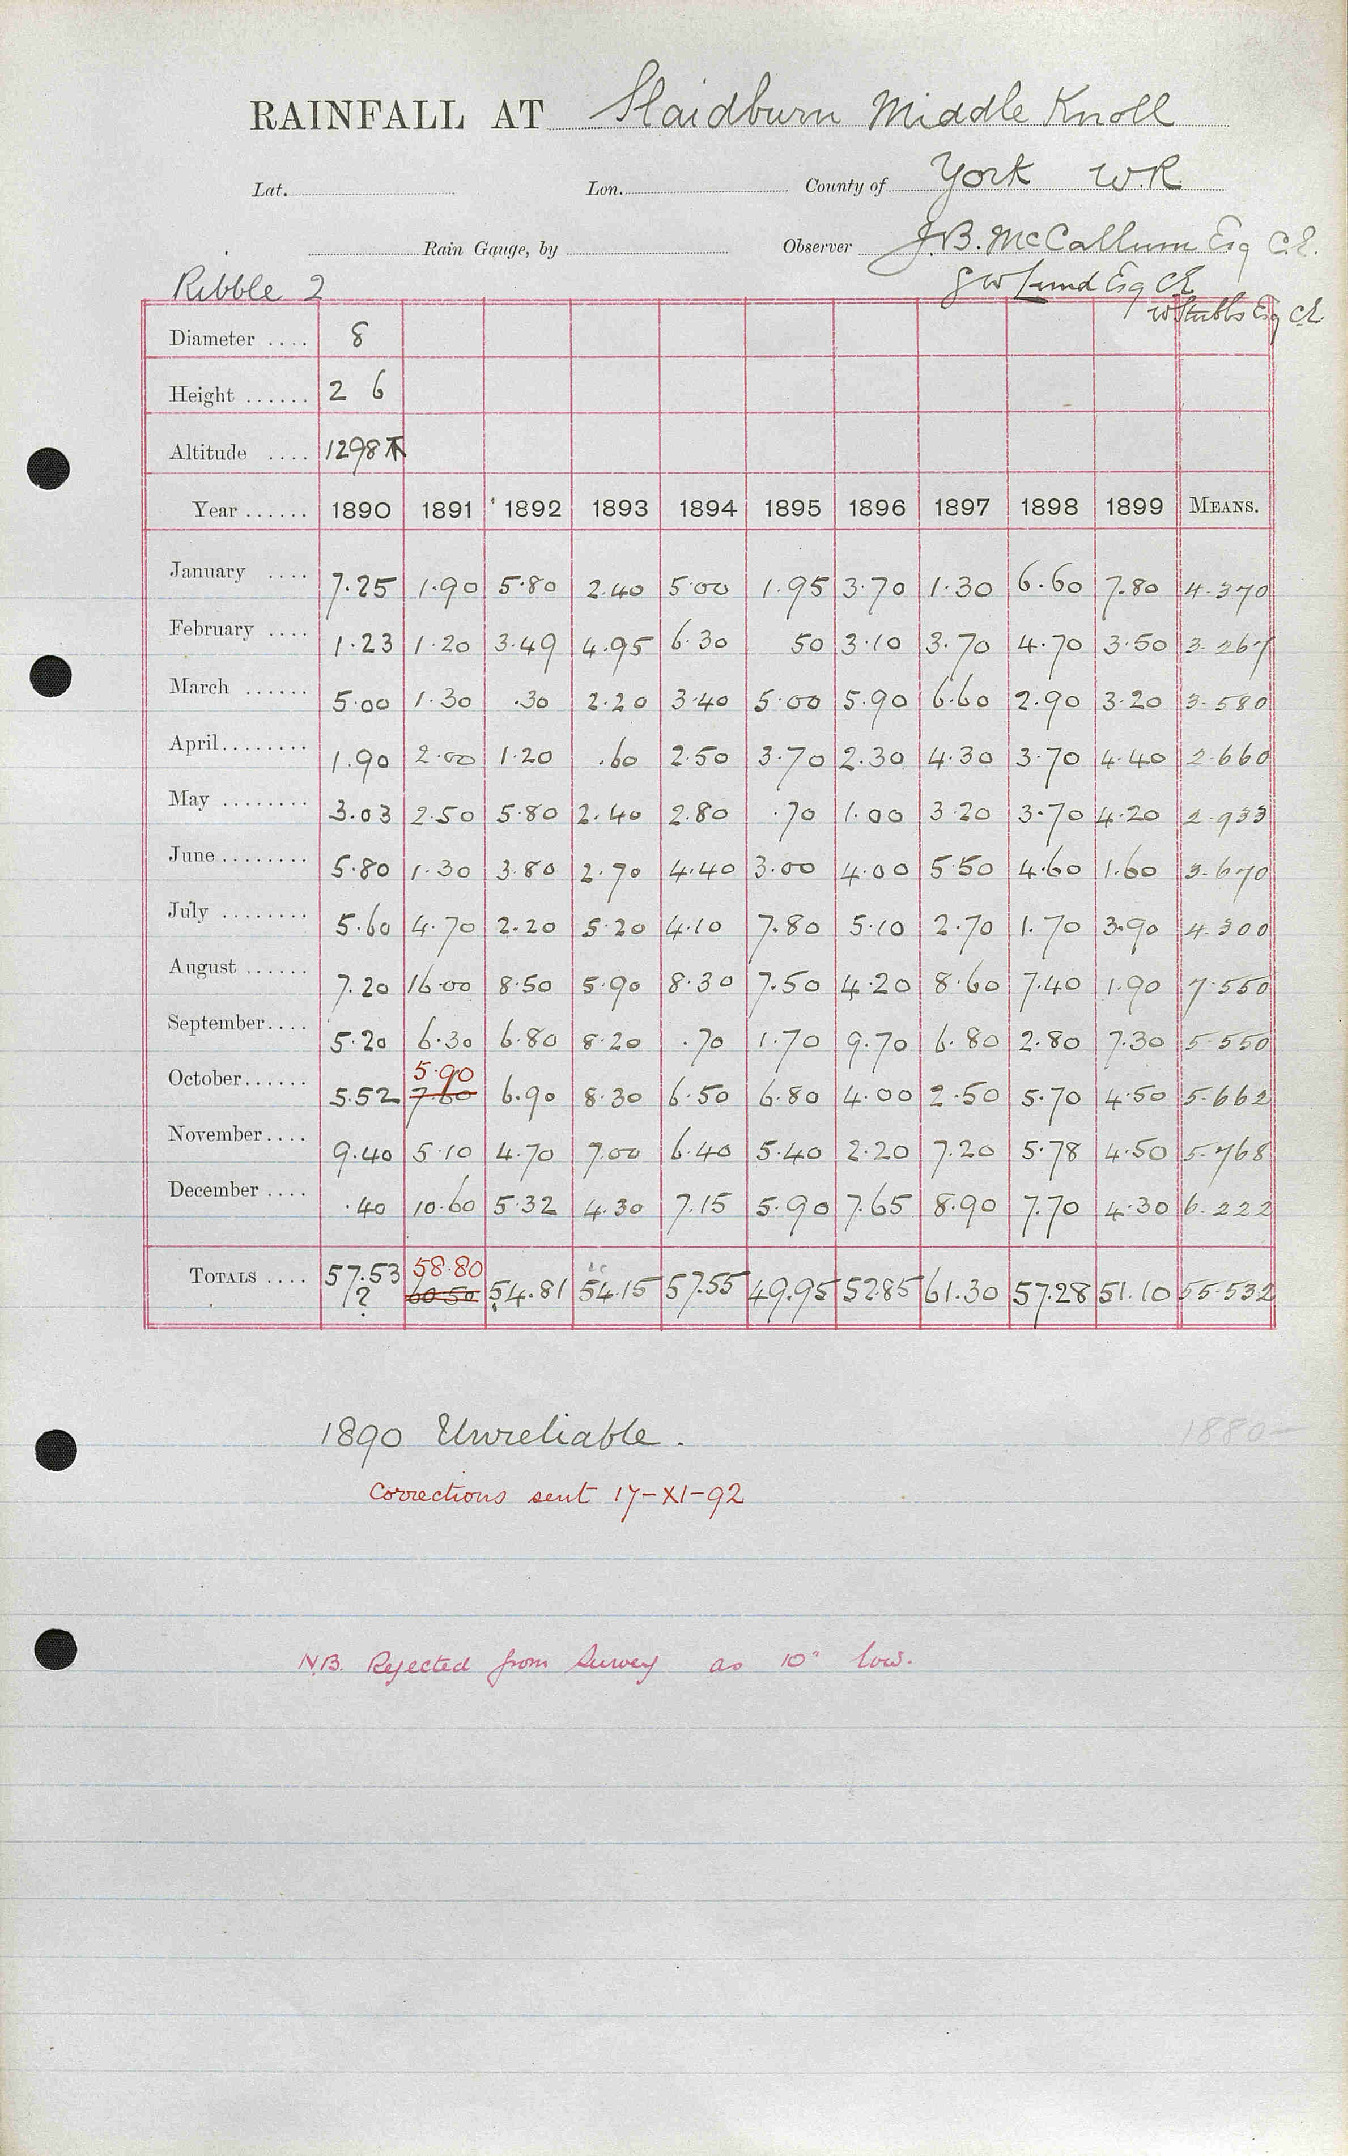 RAINFALL AT Slaidburn Middle Knoll
Lat. Lon. County of York W.R.
Rain Gauge, by Observer J.B. McCallum Esq C.E.
Ribble 2 Lund Esq CE
W Stubbs Esq CE
Diameter .... 8
Height ...... 2 6
Altitude .... 1298
Year ...... 1890 1891 1892 1893 1894 1895 1896 1897 1898 1899 MEANS.
January .... 7.25 1.90 5.80 2.40 5.00 1.95 3.70 1.30 6.60 7.80 4.370
February .... 1.23 1.20 3.49 4.95 6.30 50 3.10 3.70 4.70 3.50 3.267
March ...... 5.00 1.30 .30 2.20 3.40 5.00 5.90 6.60 2.90 3.20 3.580
April........ 1.90 2.00 1.20 .60 2.50 3.70 2.30 4.30 3.70 4.40 2.660
May ........ 3.03 2.50 5.80 2.40 2.80 .70 1.00 3.20 3.70 4.20 2.933
June........ 5.80 1.30 3.80 2.70 4.40 3.00 4.00 5.50 4.60 1.60 3.670
July ........ 5.60 4.70 2.20 5.20 4.10 7.80 5.10 2.70 1.70 3.90 4.300
August ...... 7.20 16.00 8.50 5.90 8.30 7.50 4.20 8.60 7.40 1.90 7.550
September.... 5.20 6.30 6.80 8.20 .70 1.70 9.70 6.80 2.80 7.30 5.550
5.90
October...... 5.52 7.60 6.90 8.30 6.50 6.80 4.00 2.50 5.70 4.50 5.662
November.... 9.40 5.10 4.70 7.00 6.40 5.40 2.20 7.20 5.78 4.50 5.768
December .... .40 10.60 5.32 4.30 7.15 5.90 7.65 8.90 7.70 4.30 6.222
58.80
TOTALS .... 57.53 60.50 54.81 54.15 57.55 49.95 52.85 61.30 57.28 51.10 55.532
?
1890 Unreliable.
1880-
Corrections sent 17-XI-92
N.B. Rejected from Survey as 10" low.